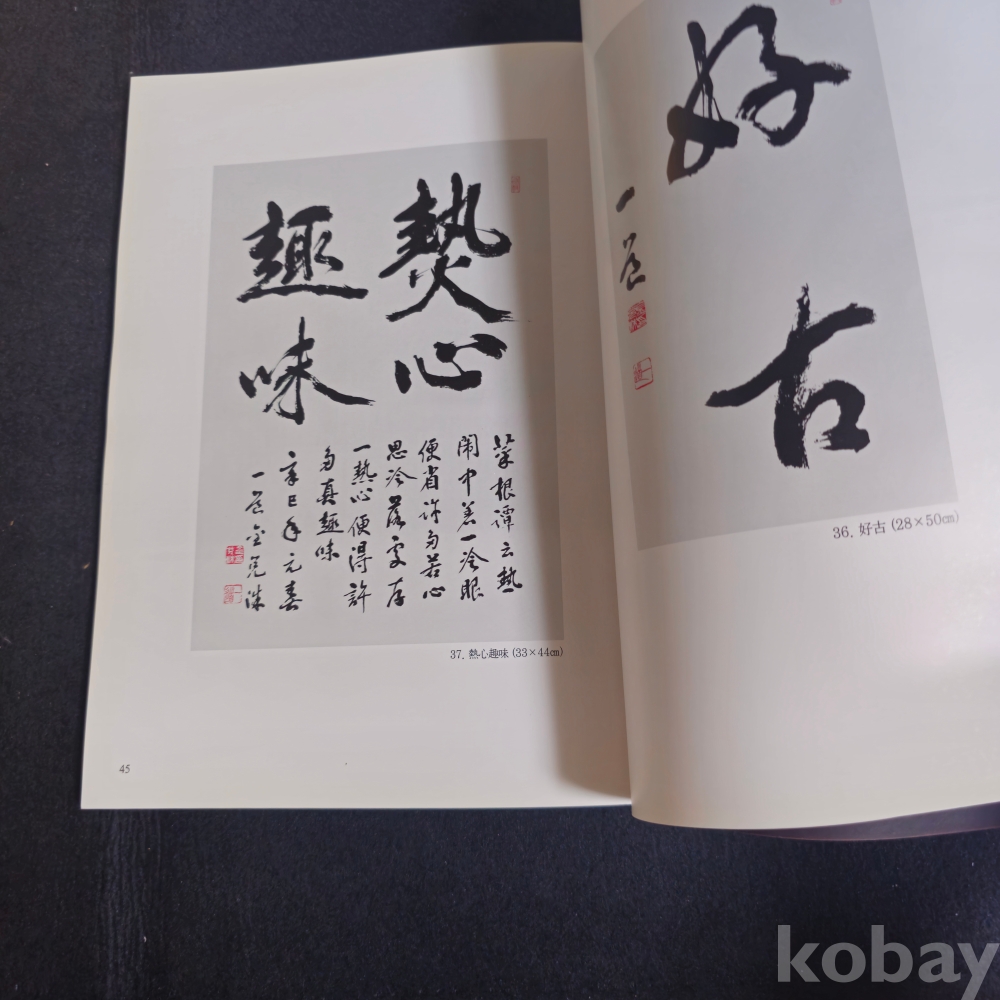 好
古
36. 好古 (28×50㎝)
熱心
趣味
菜根譚云熱
鬧中着一冷眼
便省許多苦心
思冷落處存
一熱心便得許
多真趣味
辛巳年元春
37. 熱心趣味 (33×44㎝)
45
kobay